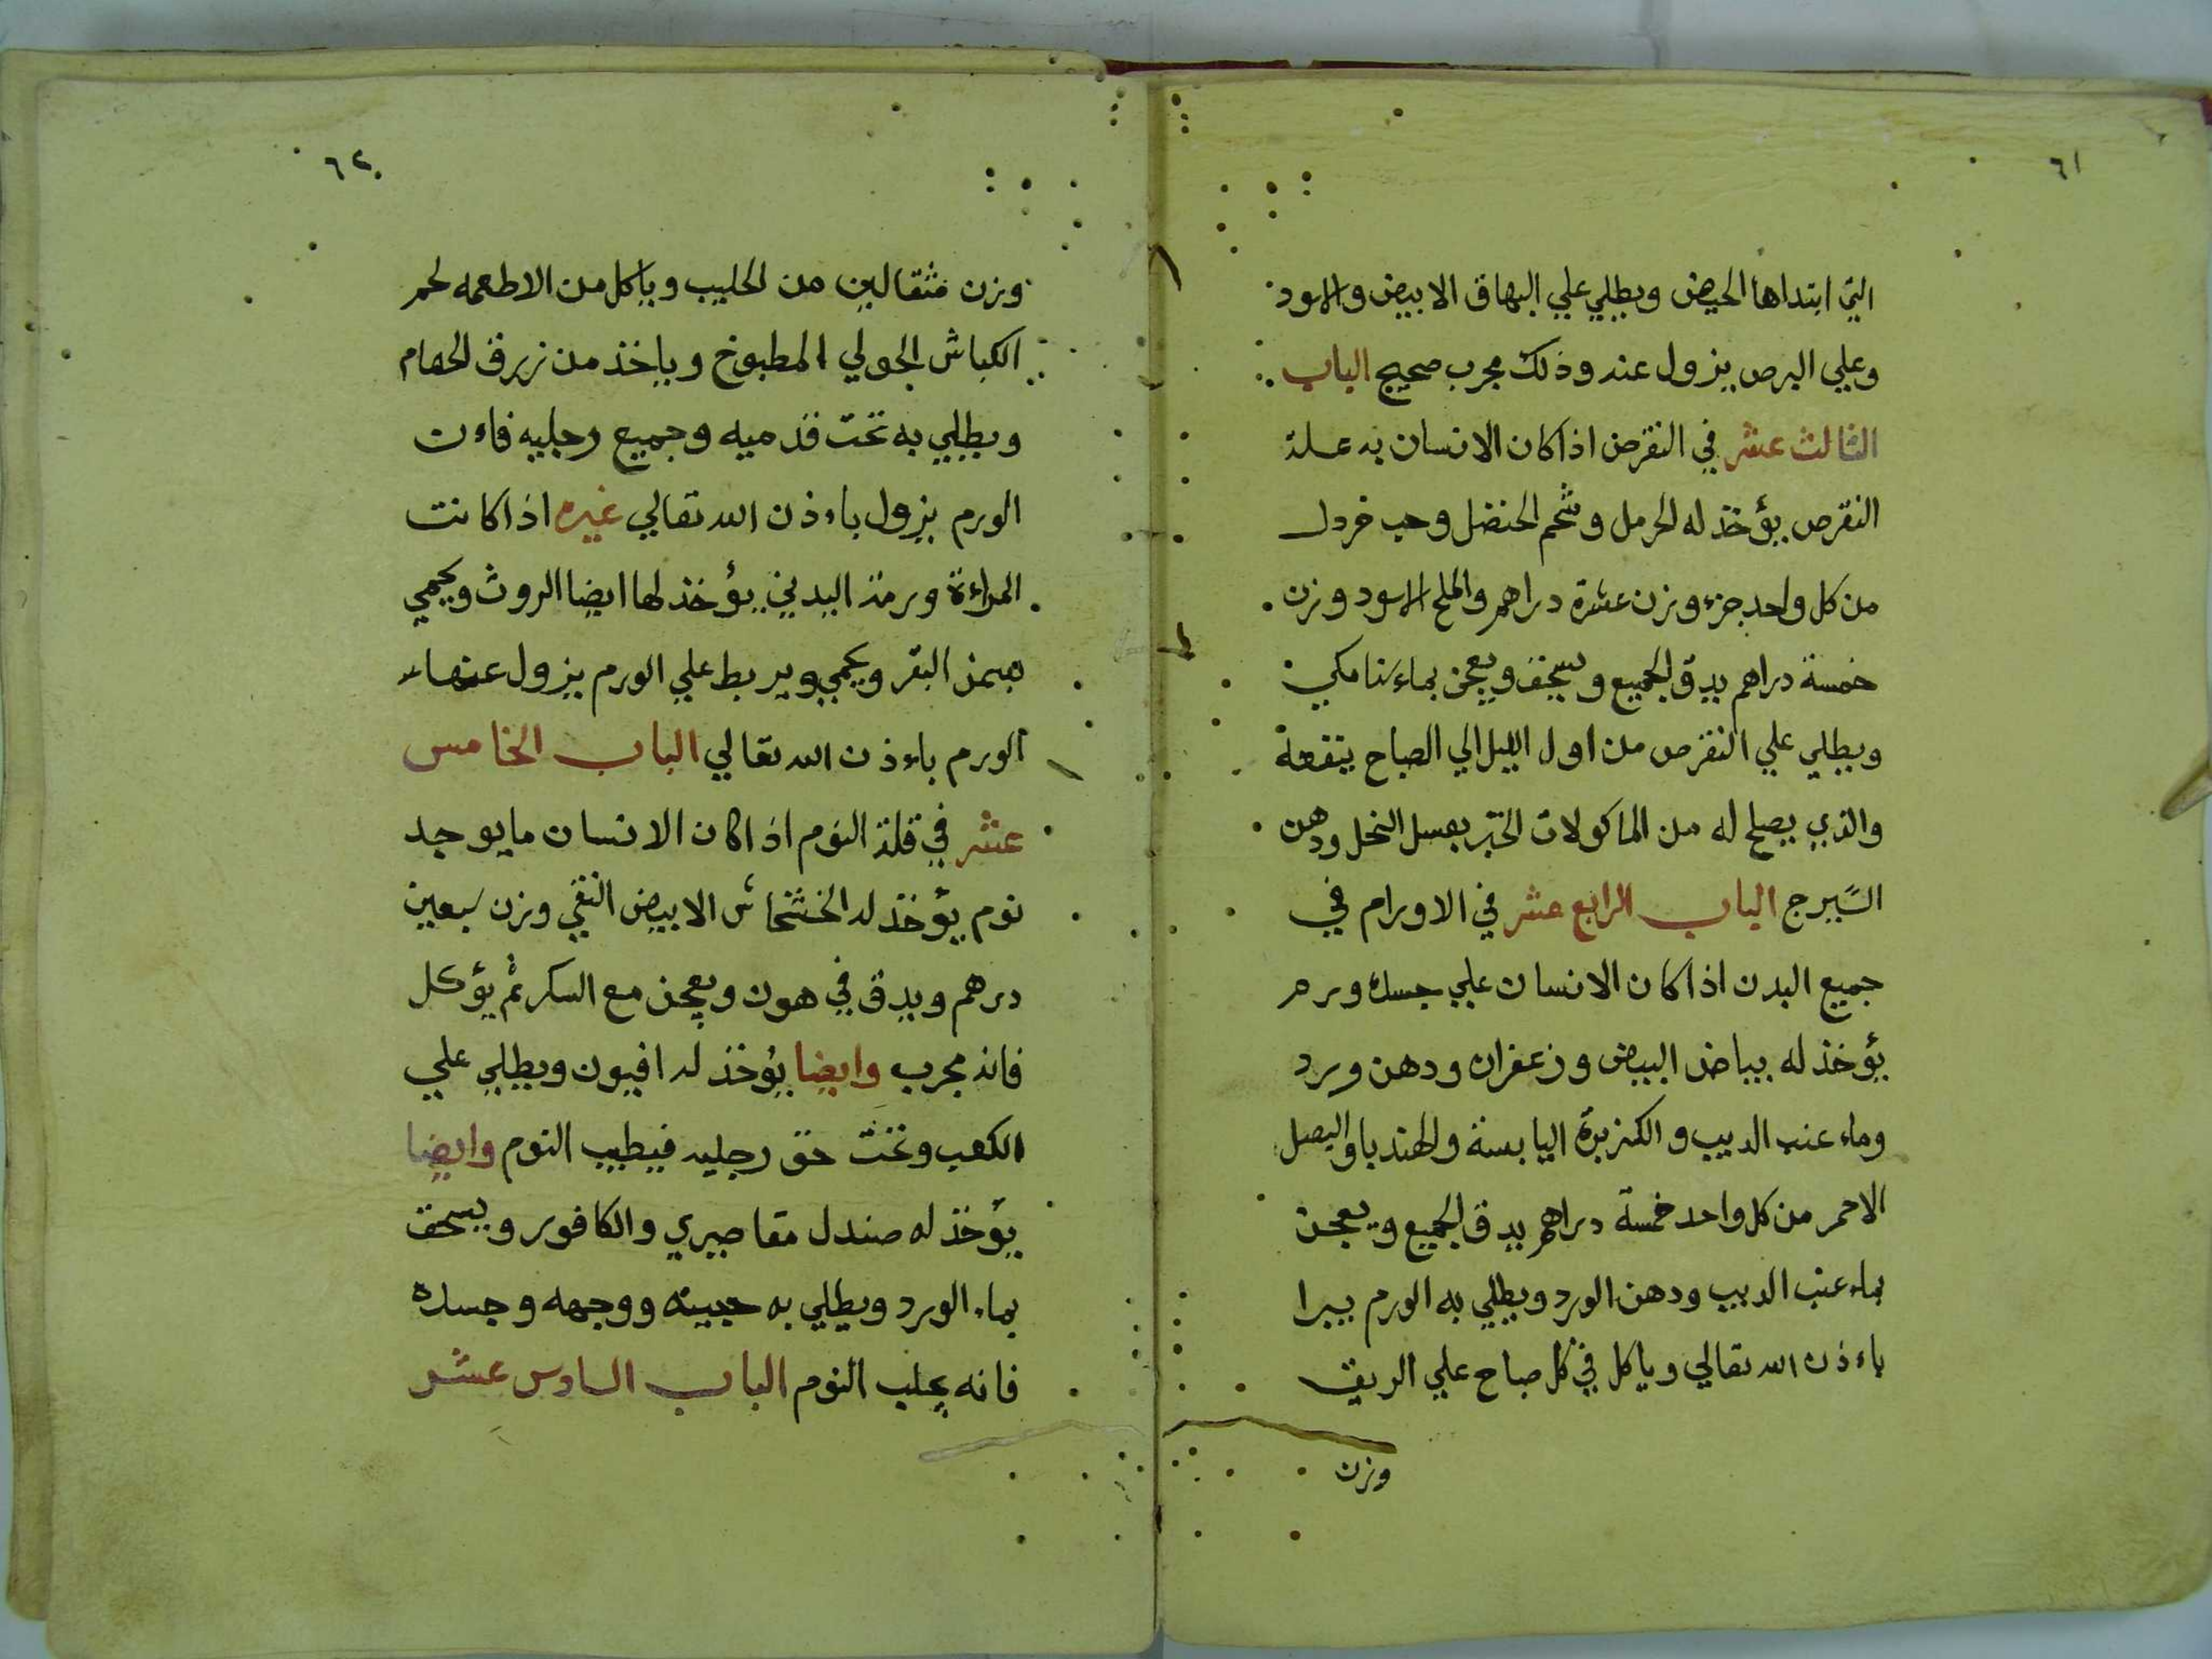 ٦١
التي ابتداها الحيض ويطلي علي البهاق الابيض والاسود
وعلي البرص يزول عنه وذلك مجرب صحيح الباب
الثالث عشر في النقرص اذا كان الانسان به علة
النقرص يؤخذ له الحرمل وشحم الحنضل وحب خردل
من كل واحد جزء وزن عشرة دراهم والملح الاسود وزن
خمسة دراهم يدق الجميع ويسحق ويعجن بماء سنامكي
ويطلي علي النقرص من اول الليل الي الصباح ينفعه
والذي يصلح له من الماكولات الخبز بعسل النحل ودهن
السيرج الباب الرابع عشر في الاورام في
جميع البدن اذا كان الانسان علي جسده ورم
يؤخذ له بياض البيض وزعفران ودهن ورد
وماء عنب الديب والكزبرة اليابسة والهندبا والبصل
الاحمر من كل واحد خمسة دراهم يدق الجميع ويعجن
بماء عنب الديب ودهن الورد ويطلي به الورم يبرا
باءذن الله تعالي وياكل في كل صباح علي الريق
وزن
٦٢
وزن مثقالين من الحليب وياكل من الاطعمه لحم
الكباش الجولي المطبوخ وياخذ من زرق الحمام
ويطلي به تحت قدميه وجميع رجليه فاءن
الورم يزول باءذن الله تعالي غيره اذا كانت
المراءة ورمة البدن يؤخذ لها ايضا الروث ويحمي
بسمن البقر ويحمي ويربط علي الورم يزول عنها
الورم باءذن الله تعالي الباب الخامس
عشر في قلة النوم اذا كان الانسان ما يوجد
نوم يؤخذ له الخشخاش الابيض النقي وزن سبعين
درهم ويدق في هون ويعجن مع السكر ثم يؤكل
فانه مجرب وايضا يؤخذ له افيون ويطلي علي
الكعب وتحت حق رجليه فيطيب النوم وايضا
يؤخذ له صندل مقاصيري والكافور ويسحق
بماء الورد ويطلي به جبينه ووجهه وجسده
فانه يجلب النوم الباب السادس عشر